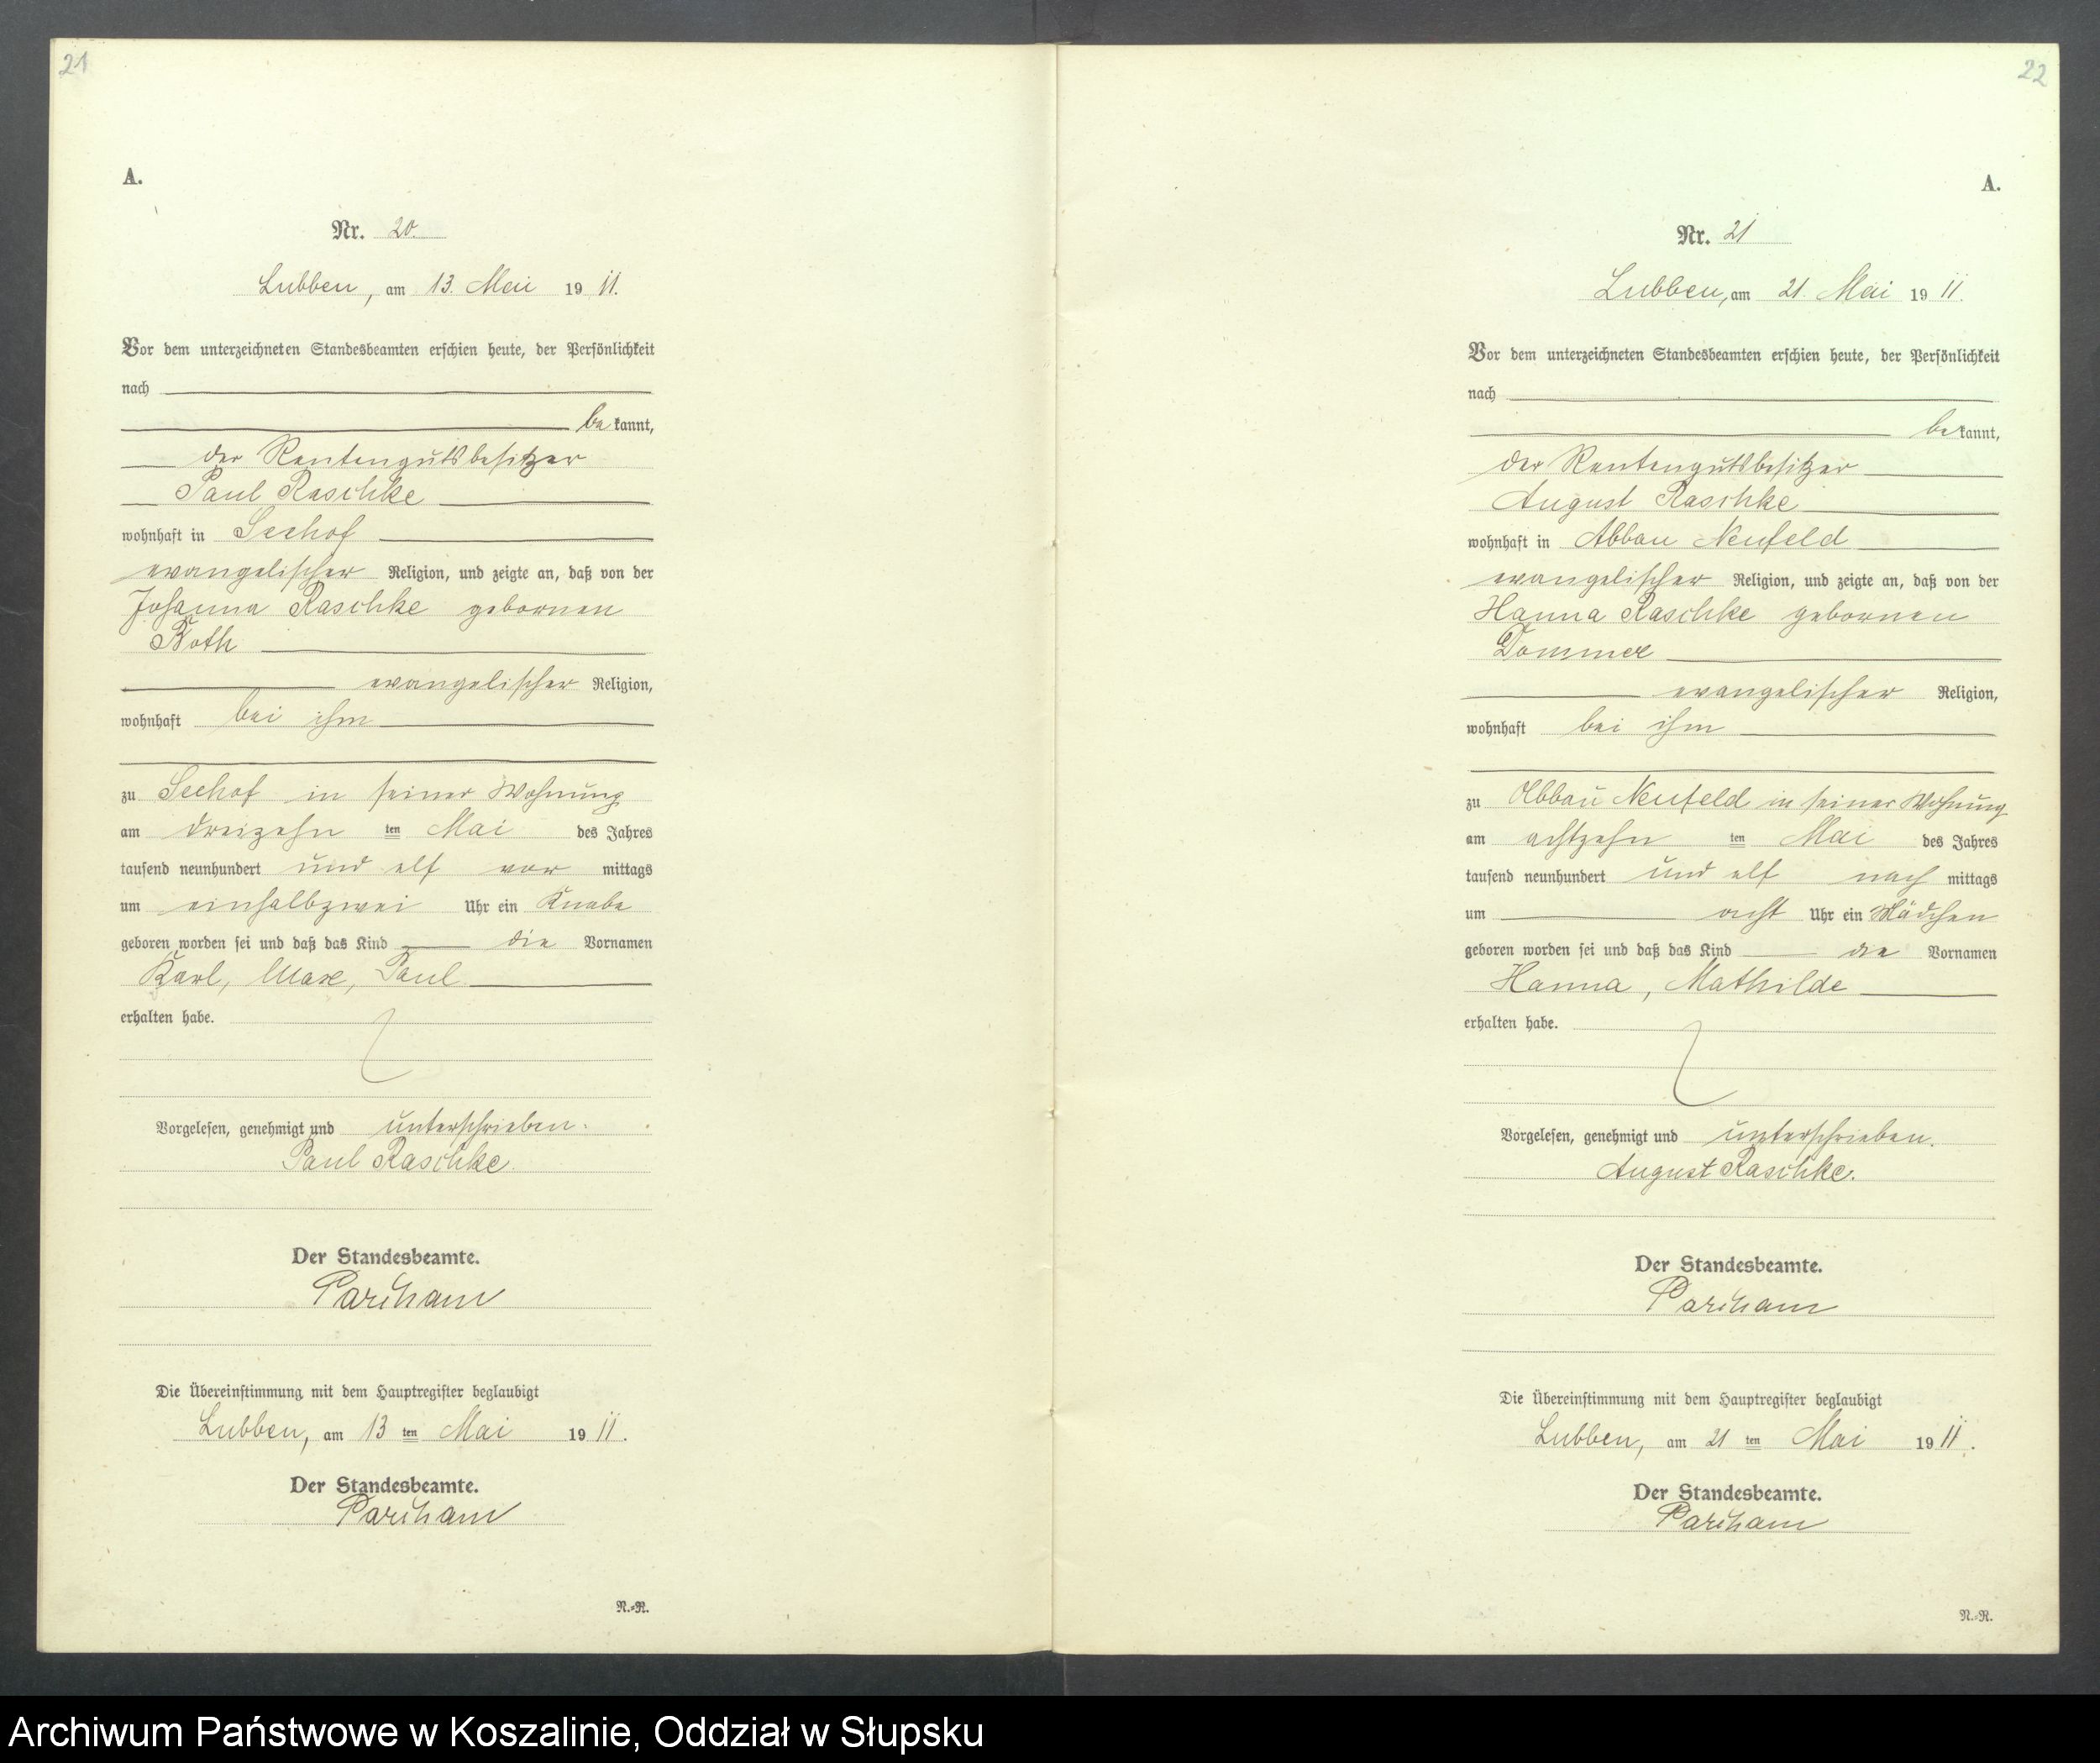 21
A.
Nr. 20.
Lubben, am 13. Mai 1911.
Vor dem unterzeichneten Standesbeamten erschien heute, der Persönlichkeit
nach
bekannt,
der Rentengutsbesitzer
Paul Raschke
wohnhaft in Seehof
evangelischer Religion, und zeigte an, daß von der
Johanna Raschke gebornen
Roth
evangelischer Religion,
wohnhaft bei ihm
zu Seehof in seiner Wohnung
am dreizehn ten Mai des Jahres
tausend neunhundert und elf vor mittags
um einhalbzwei Uhr ein Knabe
geboren worden sei und daß das Kind die Vornamen
Karl, Max, Paul
erhalten habe.
Vorgelesen, genehmigt und unterschrieben.
Paul Raschke
Der Standesbeamte.
Die Übereinstimmung mit dem Hauptregister beglaubigt
Lubben, am 13 ten Mai 1911.
Der Standesbeamte.
N.=R.
22
A.
Nr. 21
Lubben, am 21. Mai 1911.
Vor dem unterzeichneten Standesbeamten erschien heute, der Persönlichkeit
nach
bekannt,
der Rentengutsbesitzer
August Raschke
wohnhaft in Abbau Neufeld
evangelischer Religion, und zeigte an, daß von der
Hanna Raschke gebornen
Dommer
evangelischer Religion,
wohnhaft bei ihm
zu Abbau Neufeld in seiner Wohnung
am achtzehn ten Mai des Jahres
tausend neunhundert und elf nach mittags
um acht Uhr ein Mädchen
geboren worden sei und daß das Kind die Vornamen
Hanna, Mathilde
erhalten habe.
Vorgelesen, genehmigt und unterschrieben.
August Raschke.
Der Standesbeamte.
Die Übereinstimmung mit dem Hauptregister beglaubigt
Lubben, am 21 ten Mai 1911.
Der Standesbeamte.
N.=R.
Archiwum Państwowe w Koszalinie, Oddział w Słupsku